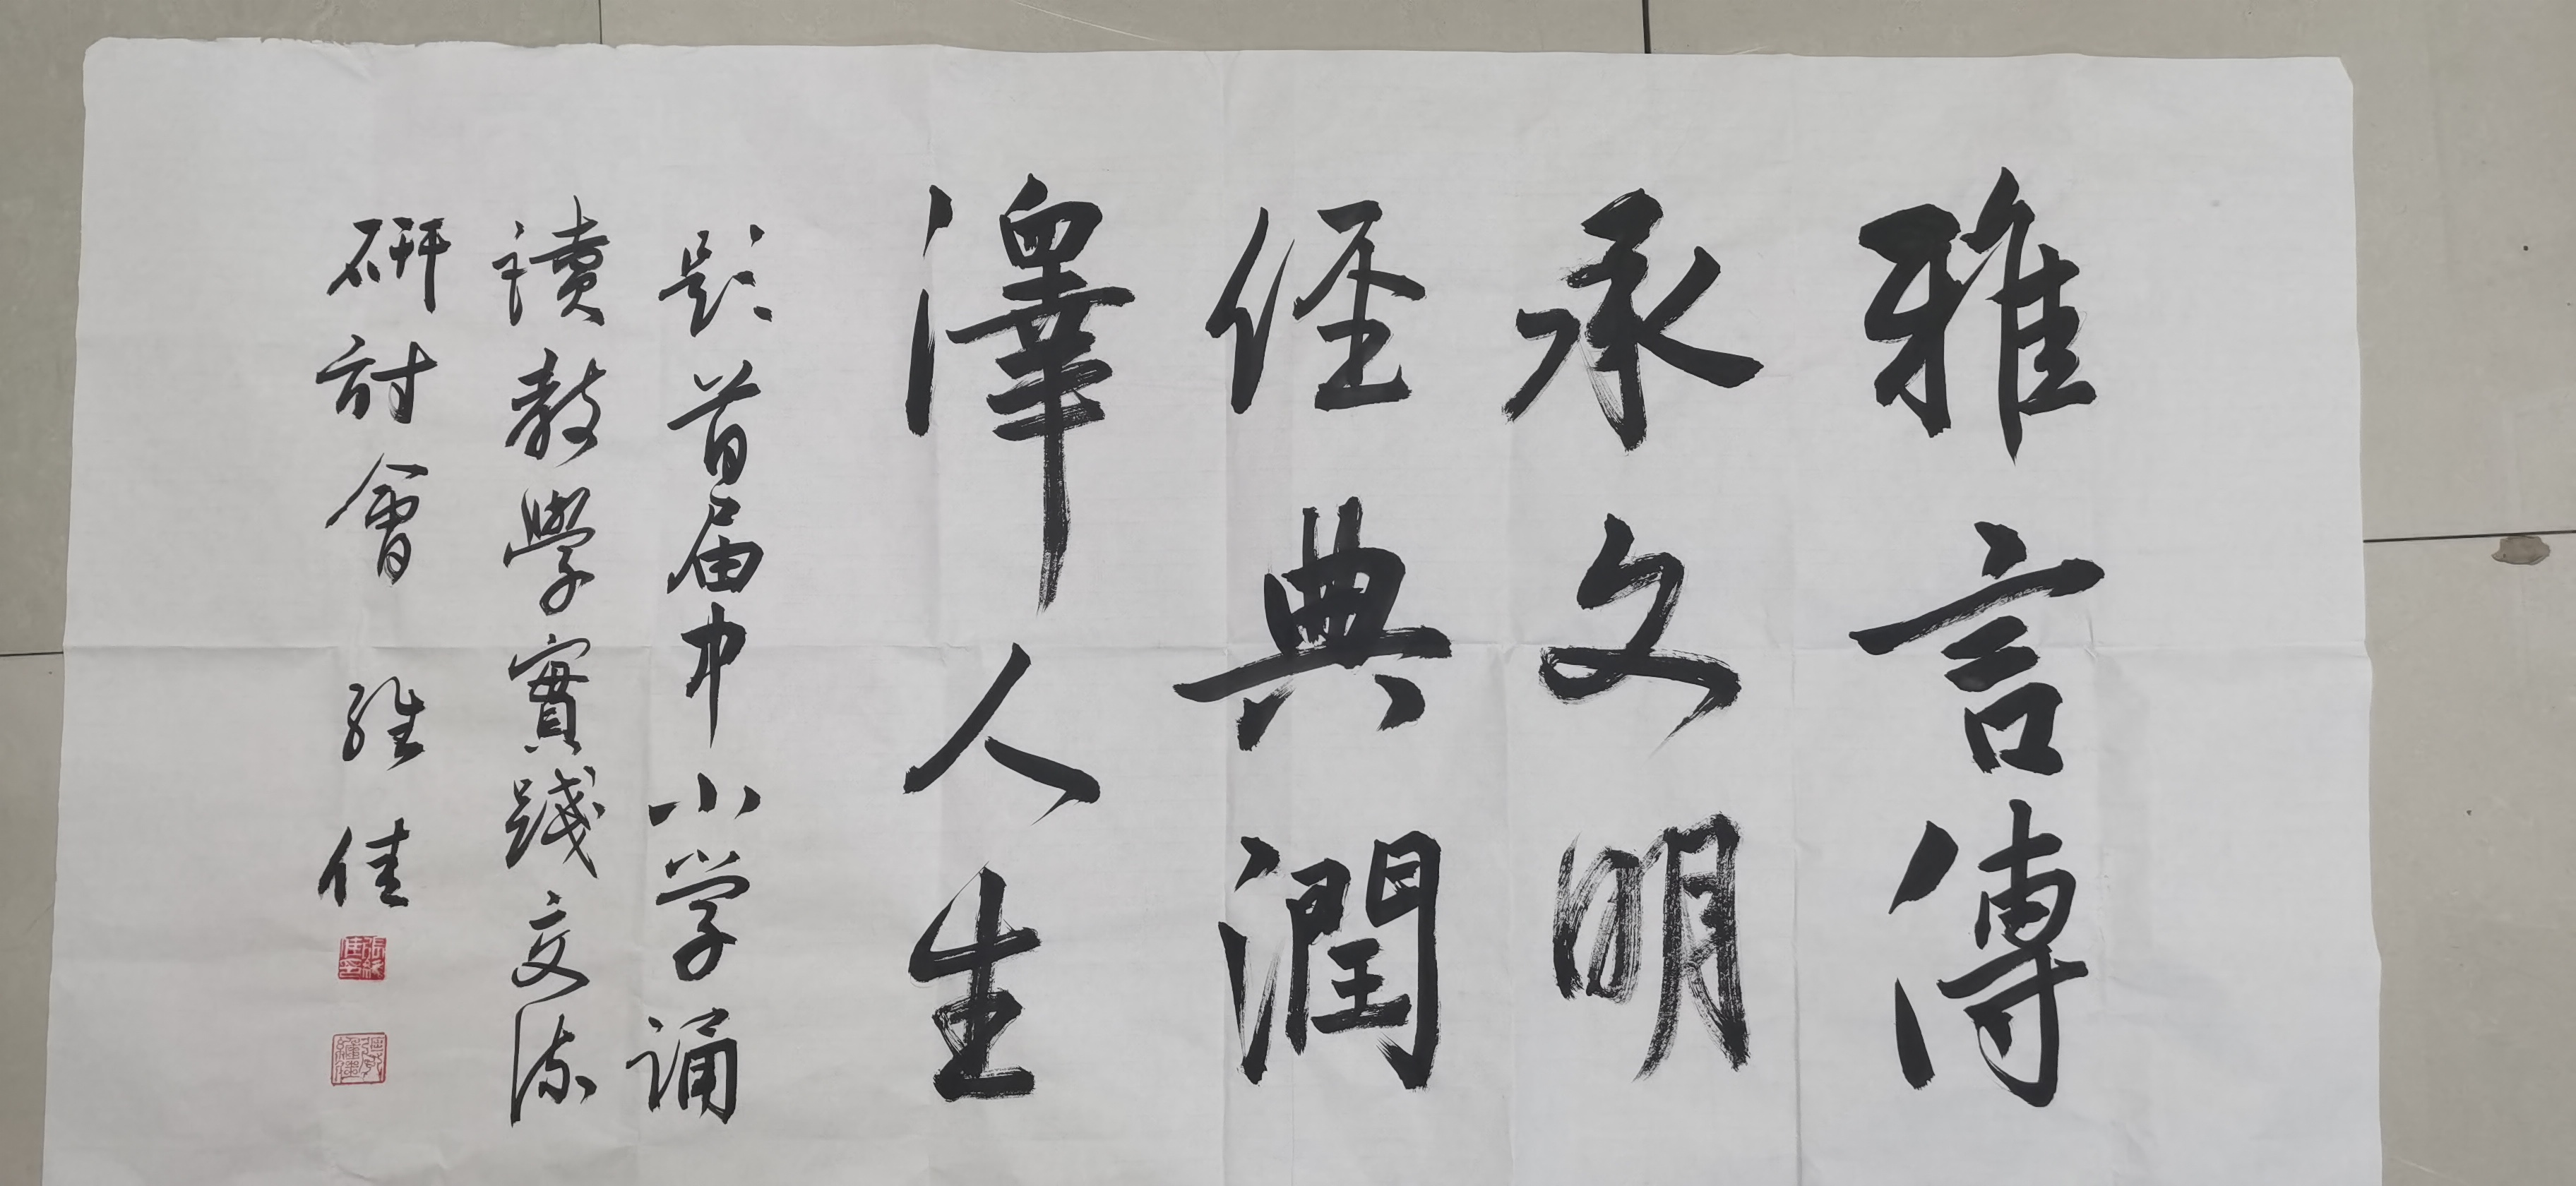 雅言傳
承文明
經典潤
澤人生
題首届中小学誦
讀教學實踐交流
研討會 維佳